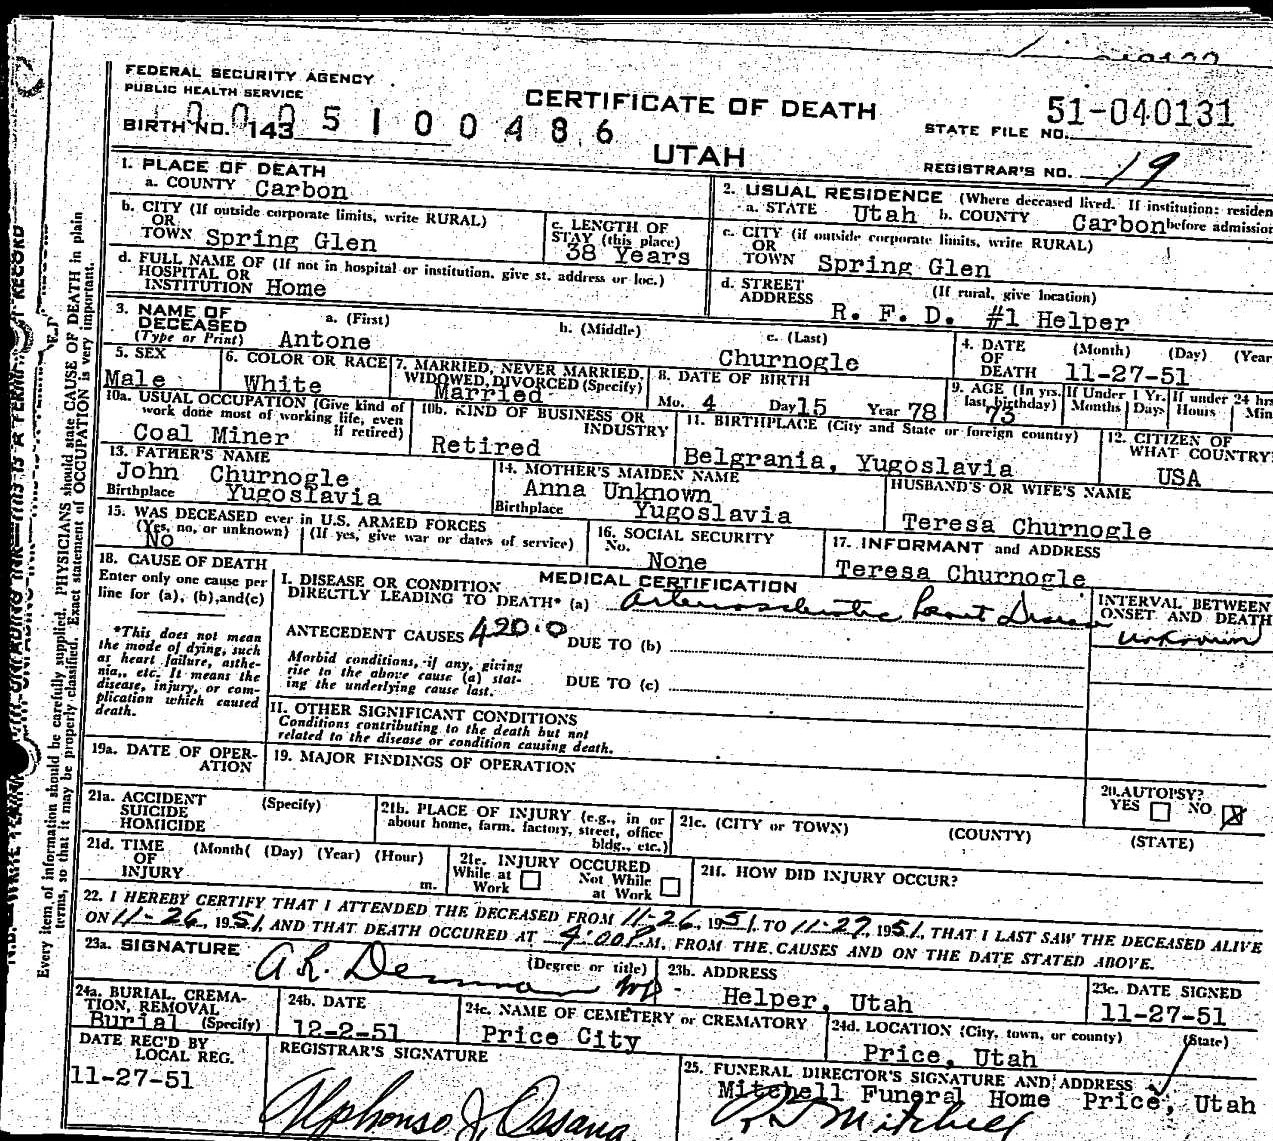 FEDERAL SECURITY AGENCY
PUBLIC HEALTH SERVICE
CERTIFICATE OF DEATH
51-040131
STATE FILE NO.
BIRTH NO. 143
5100486
UTAH
REGISTRAR'S NO. 19
1. PLACE OF DEATH
a. COUNTY Carbon
2. USUAL RESIDENCE (Where deceased lived. If institution: residen
before admission
a. STATE Utah b. COUNTY Carbon
b. CITY (If outside corporate limits, write RURAL)
OR
TOWN Spring Glen
c. LENGTH OF
STAY (this place)
38 Years
c. CITY (if outside corporate limits, write RURAL)
OR
TOWN Spring Glen
d. FULL NAME OF (If not in hospital or institution, give st. address or loc.)
HOSPITAL OR
INSTITUTION Home
d. STREET
ADDRESS
(If rural, give location)
R. F. D. #1 Helper
3. NAME OF
DECEASED
(Type or Print)
a. (First)
b. (Middle)
c. (Last)
Antone
Churnogle
4. DATE
OF
DEATH
(Month) (Day) (Year
11-27-51
5. SEX
Male
6. COLOR OR RACE
White
7. MARRIED, NEVER MARRIED,
WIDOWED, DIVORCED (Specify)
Married
8. DATE OF BIRTH
Mo. 4 Day 15 Year 78
9. AGE (In yrs.
last birthday)
73
If Under 1 Yr.
Months Days
If under 24 hrs
Hours Min
10a. USUAL OCCUPATION (Give kind of
work done most of working life, even
if retired)
Coal Miner
10b. KIND OF BUSINESS OR
INDUSTRY
Retired
11. BIRTHPLACE (City and State or foreign country)
Belgrania, Yugoslavia
12. CITIZEN OF
WHAT COUNTRY
USA
13. FATHER'S NAME
John Churnogle
Birthplace Yugoslavia
14. MOTHER'S MAIDEN NAME
Anna Unknown
Birthplace Yugoslavia
HUSBAND'S OR WIFE'S NAME
Teresa Churnogle
15. WAS DECEASED ever in U.S. ARMED FORCES
(Yes, no, or unknown) (If yes, give war or dates of service)
No
16. SOCIAL SECURITY
No.
None
17. INFORMANT and ADDRESS
Teresa Churnogle
18. CAUSE OF DEATH
Enter only one cause per
line for (a), (b), and(c)
*This does not mean
the mode of dying, such
as heart failure, asthe-
nia,, etc. It means the
disease, injury, or com-
plication which caused
death.
MEDICAL CERTIFICATION
I. DISEASE OR CONDITION
DIRECTLY LEADING TO DEATH* (a) Arteriosclerotic heart Disease
INTERVAL BETWEEN
ONSET AND DEATH
unknown
ANTECEDENT CAUSES 420.0
DUE TO (b)
Morbid conditions, if any, giving
rise to the above cause (a) stat-
ing the underlying cause last.
DUE TO (c)
II. OTHER SIGNIFICANT CONDITIONS
Conditions contributing to the death but not
related to the disease or condition causing death.
19a. DATE OF OPER-
ATION
19. MAJOR FINDINGS OF OPERATION
20. AUTOPSY?
YES NO X
21a. ACCIDENT
SUICIDE
HOMICIDE
(Specify)
21b. PLACE OF INJURY (e.g., in or
about home, farm. factory, street, office
bldg., etc.)
21c. (CITY or TOWN)
(COUNTY)
(STATE)
21d. TIME
OF
INJURY
(Month( (Day) (Year) (Hour)
m.
21e. INJURY OCCURED
While at
Work
Not While
at Work
21f. HOW DID INJURY OCCUR?
22. I HEREBY CERTIFY THAT I ATTENDED THE DECEASED FROM 11-26, 1951, TO 11-27, 1951, THAT I LAST SAW THE DECEASED ALIVE
ON 11-26, 1951, AND THAT DEATH OCCURED AT 4:00P.M. FROM THE CAUSES AND ON THE DATE STATED ABOVE.
23a. SIGNATURE
A R. Demman MD
(Degree or title)
23b. ADDRESS
Helper, Utah
23c. DATE SIGNED
11-27-51
24a. BURIAL, CREMA-
TION, REMOVAL
(Specify)
Burial
24b. DATE
12-2-51
24c. NAME OF CEMETERY or CREMATORY
Price City
24d. LOCATION (City, town, or county) (State)
Price, Utah
DATE REC'D BY
LOCAL REG.
11-27-51
REGISTRAR'S SIGNATURE
Alphonso J. Ossana
25. FUNERAL DIRECTOR'S SIGNATURE AND ADDRESS
Mitchell Funeral Home Price, Utah
Mitchell
Every item of information should be carefully supplied. PHYSICIANS should state CAUSE OF DEATH in plain
terms, so that it may be properly classified. Exact statement of OCCUPATION is very important.